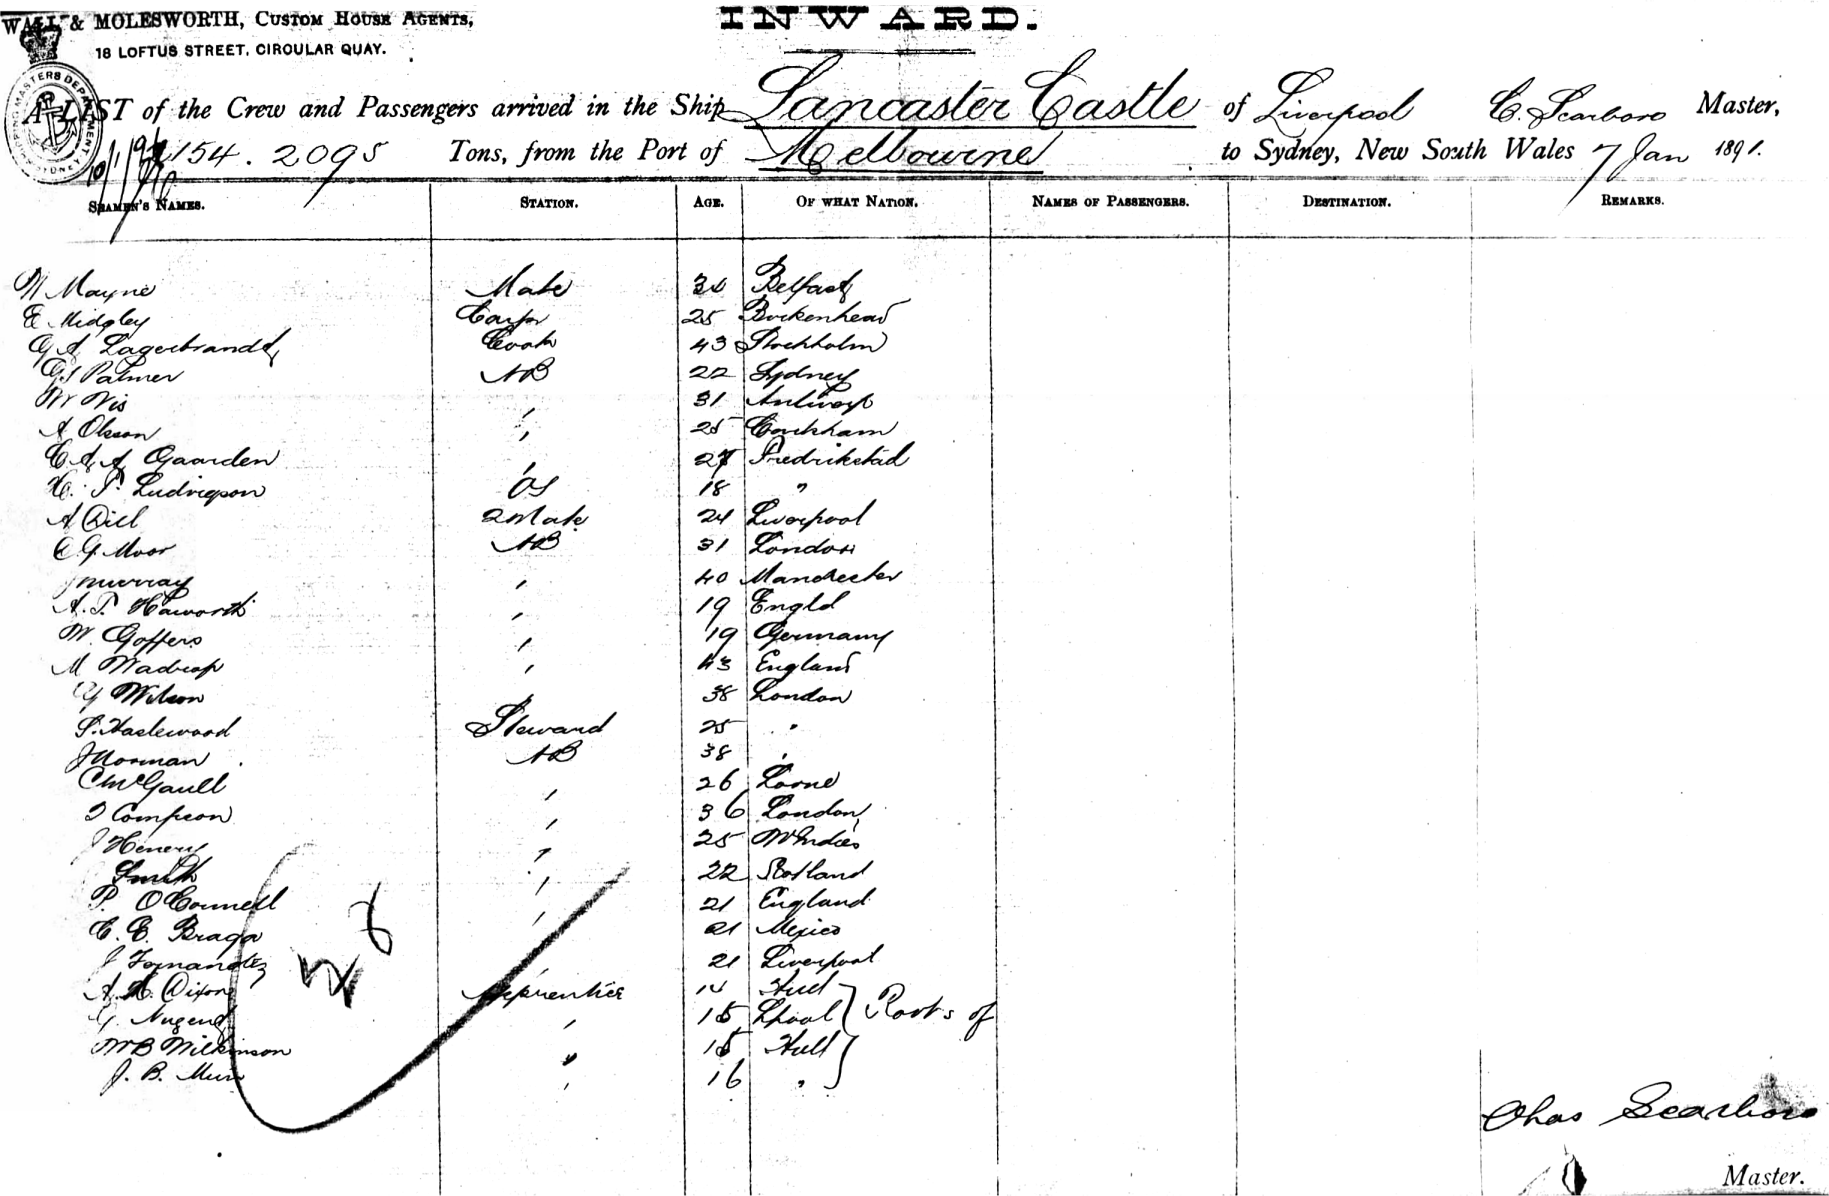 WALL & MOLESWORTH, CUSTOM HOUSE AGENTS,
18 LOFTUS STREET, CIRCULAR QUAY.
INWARD.
A LIST of the Crew and Passengers arrived in the Ship Lancaster Castle of Liverpool C. Scarboro Master,
2095 Tons, from the Port of Melbourne to Sydney, New South Wales 7 Jan 1891.
SEAMEN'S NAMES. STATION. AGE. OF WHAT NATION. NAMES OF PASSENGERS. DESTINATION. REMARKS.
W Mayne Mate Belfast
E Midgley Carp 25 Birkenhead
G A Lagerbrandt Cook 43 Stockholm
Palmer AB 22 Sydney
W Nis 31 Antwerp
A Olsson " 25
Gaarden " 27 Fredrikstad
H. T. Ludvigson OS 18 "
A Dill 2 Mate 24 Liverpool
E G Moor AB 31 London
J Murray " 40 Manchester
A. T. Haworth " 19 Engld
W. Goffers " 19 Germany
M Wadrop " 43 England
G Wilson 38 London
S. Haslewood Steward 25 "
J Norman AB 38 "
C McGaull " 26 Lorne
Compson " 36 London
J Henery " 25 W Indies
Smith " 22 Scotland
P. O'Connell " 21 England
C. E. Braga 21 Mexico
J Fernandez " 21 Liverpool
A. H. Dixon Apprentice 14 Hull
G. Nugent " 15 Lpool Ports of
W B Wilkinson " 15 Hull
J. B. Muir " 16 "
28
Chas Scarboro
Master.